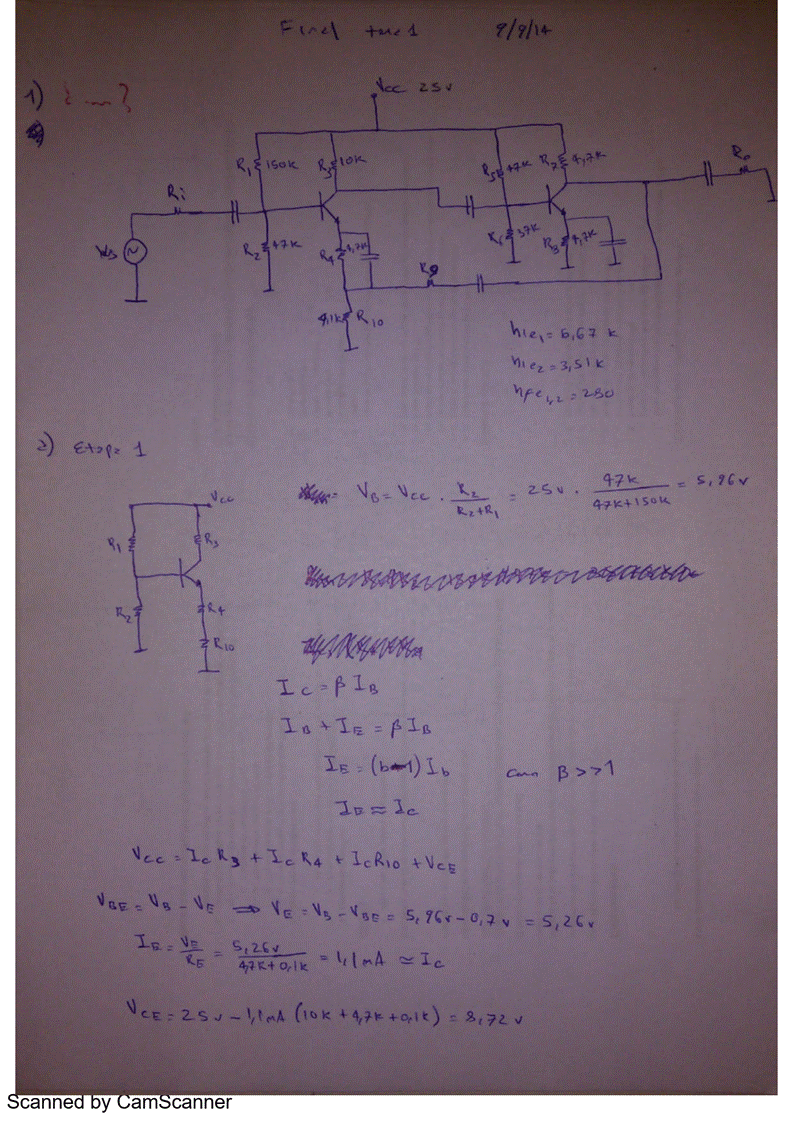 Final tuc1 9/9/14
1)
Vcc 25v
R1 150K R3 10K R5 47K R7 4,7K Ro
Ri
Vs R2 47K R4 4,7K R6 37K R8 4,7K
R9
4,1K R10
hie1 = 6,67 K
hie2 = 3,51K
hfe1,2 = 280
2) Etapa 1
Vcc
VB = Vcc . R2 / R2+R1 = 25v . 47K / 47K+150K = 5,96v
R1 R3
R2 R4
R10
IC = β IB
IB + IE = β IB
IE = (b-1) Ib con β >> 1
IE ≈ IC
VCC = IC R3 + IC R4 + IC R10 + VCE
VBE = VB - VE ⇒ VE = VB - VBE = 5,96v - 0,7v = 5,26v
IE = VE / RE = 5,26v / 4,7K+0,1K = 1,1mA ≈ IC
VCE = 25v - 1,1mA (10K + 4,7K + 0,1K) = 8,72v
Scanned by CamScanner